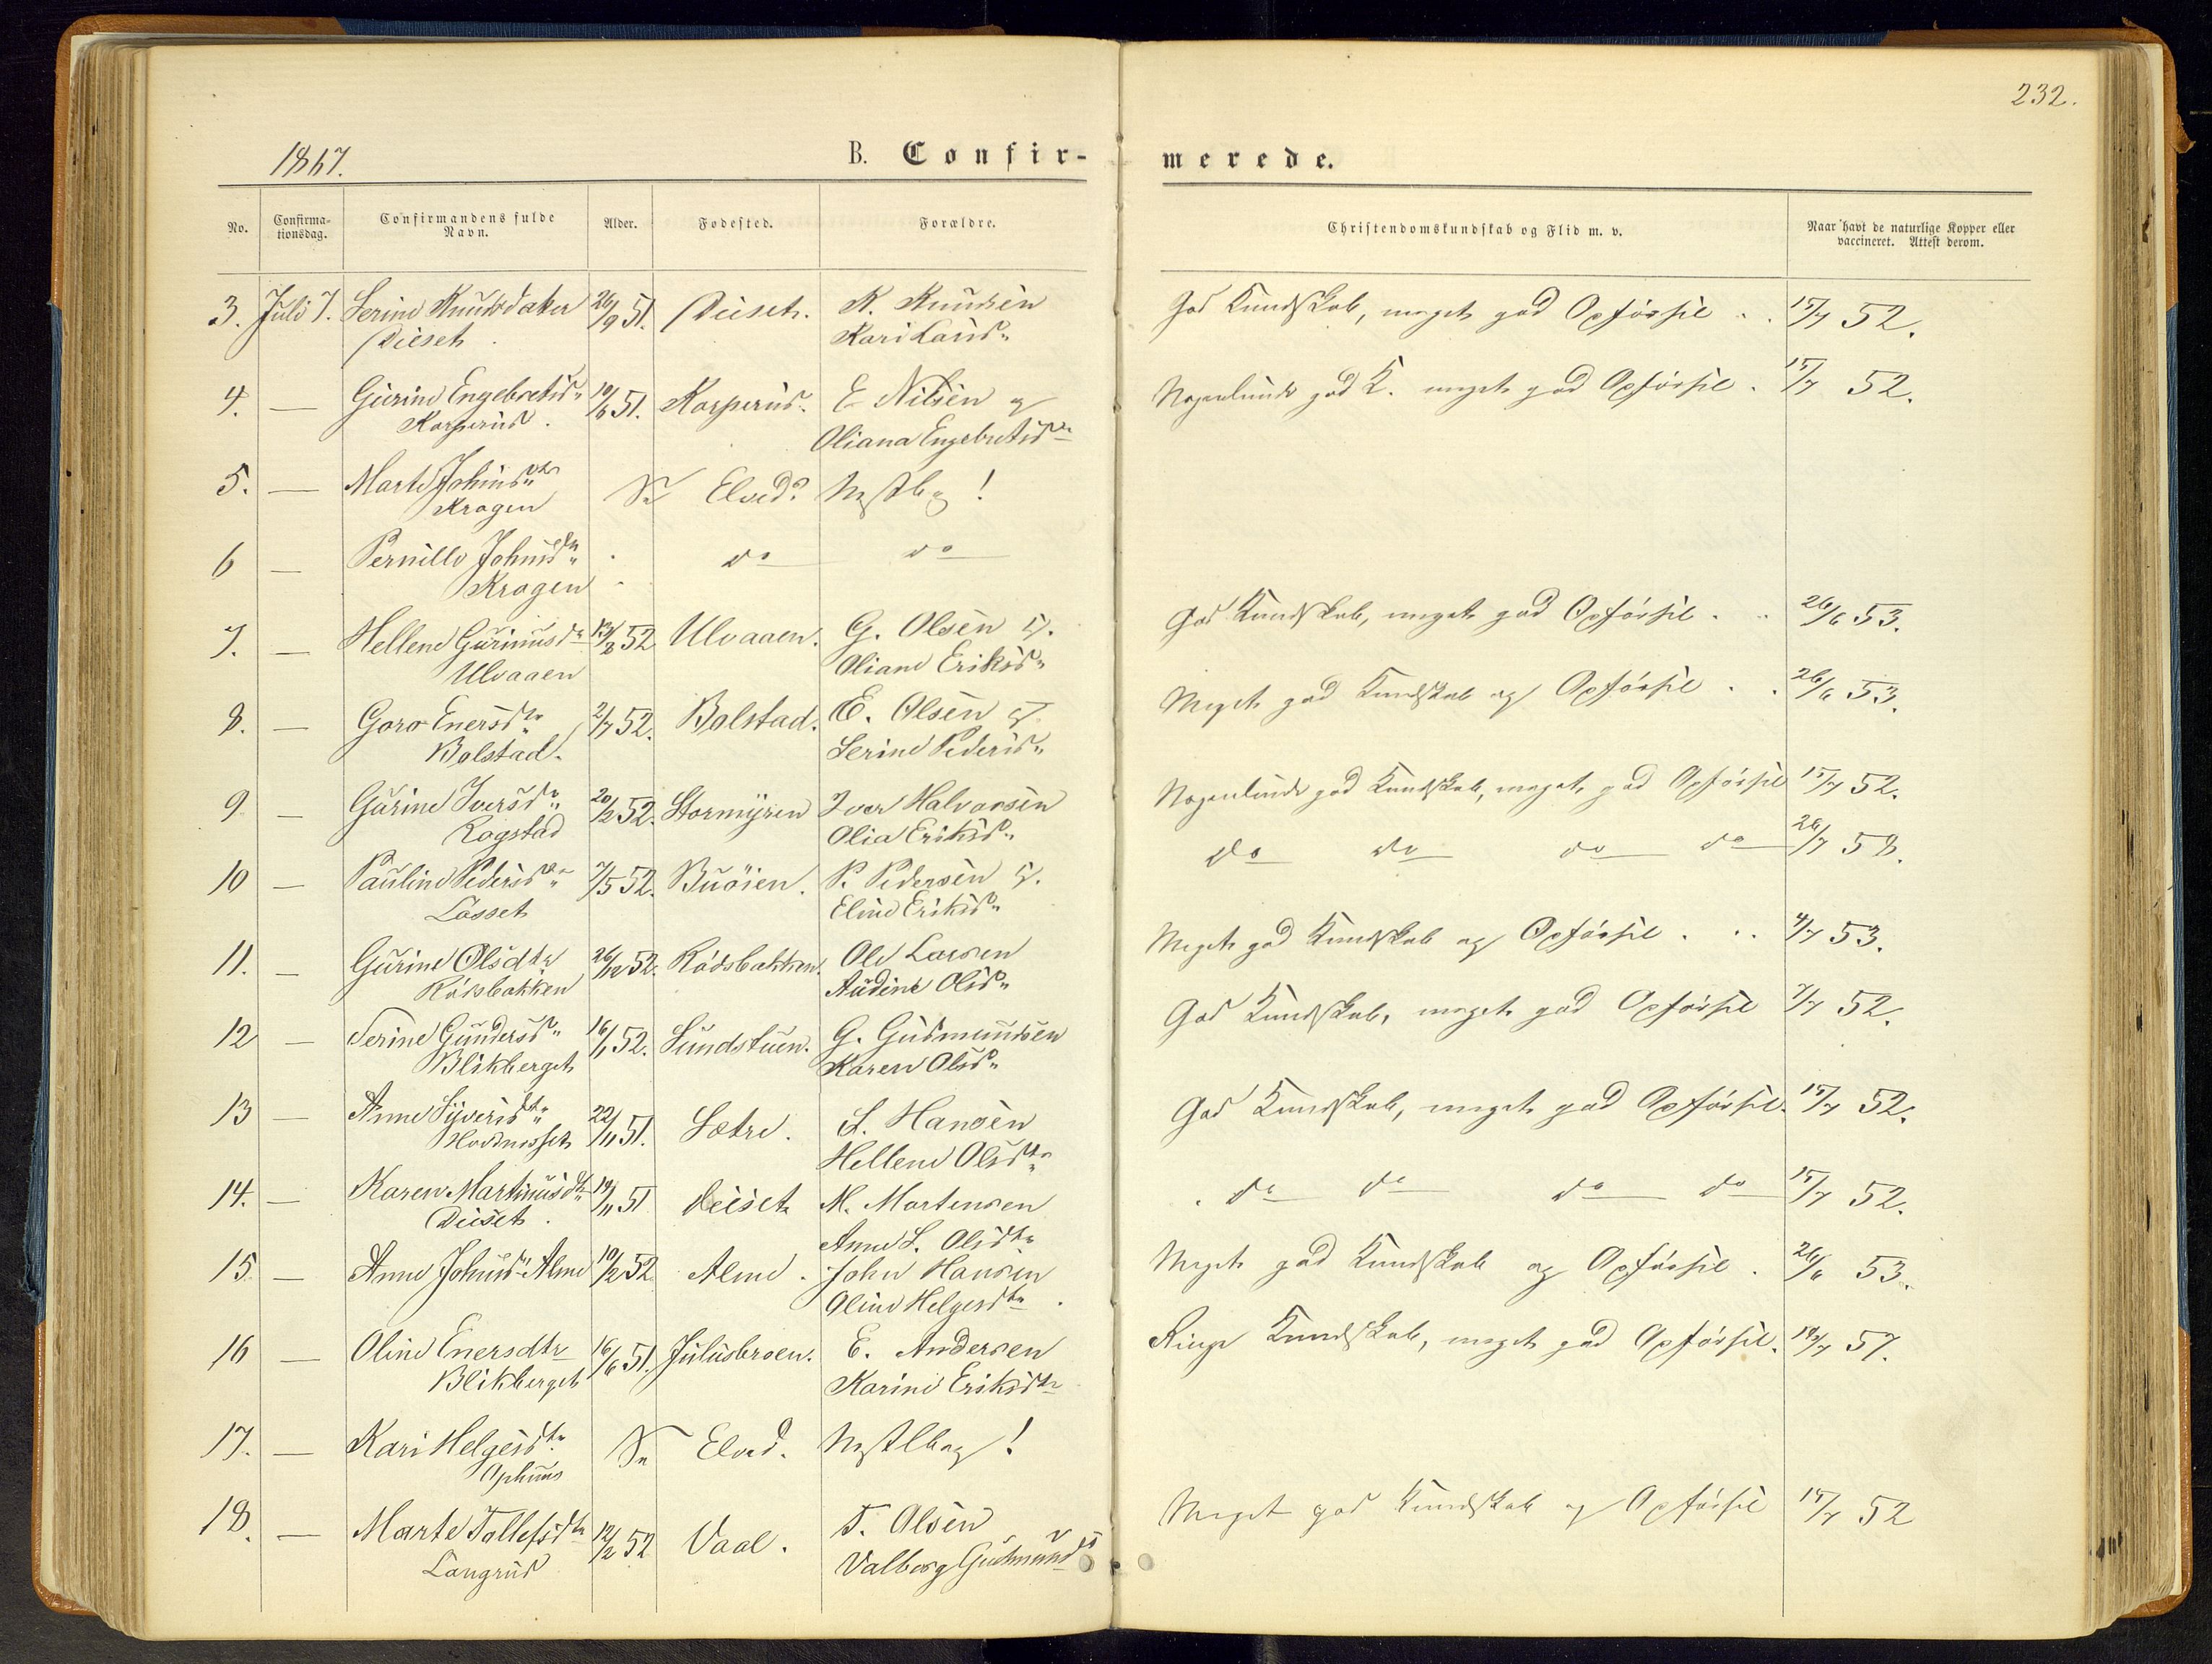 232.
1867.
B. Confir-
merede.
No.
Confirma-
tionsdag.
Confirmandens fulde
Navn.
Alder.
Fodested.
Forældre.
Christendomskundskab og Flid m. v.
Naar havt de naturlige Kopper eller
vaccineret. Attest derom.
3. Juli 7. Serine Knudsdatter 26/9 51. Diiset. K. Knudsen God Kundskab, meget god Opførsel . . 15/7 52.
Diiset. Kari Larsd.
4. — Gurine Engebretsd. 10/6 51. Korperud. E Nilsen og Nogenlunde god K. meget god Opførsel . 15/7 52.
Korperud. Oliana Engebretsd.
5. — Marte Johnsd. Se Elved.
Kragen
6 — Pernille Johnsd. do do
Kragen
7. — Hellene Gurinusd. 13/8 52 Ulvaaen. G. Olsen og God Kundskab, meget god Opførsel . . 26/6 53.
Ulvaaen Oliane Eriksd.
8. — Goro Enersd. 2/7 52. Bolstad. E. Olsen og Meget god Kundskab og Opførsel . . 26/6 53.
Bolstad. Serine Pedersd.
9 — Gurine Iversd. 20/2 52. Stormyren Iver Halvorsen Nogenlunde god Kundskab, meget god Opførsel 15/7 52.
Rogstad Olia Eriksd.
10 — Pauline Pedersd. 7/5 52. Buöien. P. Pedersen og do do do do 26/7 58.
Losset Eline Eriksd.
11. — Gurine Olsdtr 26/12 52. Rödsbakken. Ole Larsen Meget god Kundskab og Opførsel . . . 4/7 53.
Rödsbakken Audine Olsd.
12 — Serine Gundersd. 16/1 52. Sundstuen. G. Gudmundsen God Kundskab, meget god Opførsel 7/7 52.
Blikberget Karen Olsd.
13 — Anne Syversdtr 22/11 51. Sætre. S. Hansen God Kundskab, meget god Opførsel. 15/7 52.
Hellene Olsdtr
14. — Karen Martinusdtr 19/11 51 Deiset M. Martensen do do do do 15/7 52.
Diiset. Anne L. Olsdtr
15 — Anne Johnsd. Alme 10/2 52 Alme . John Hansen Meget god Kundskab og Opførsel . 26/6 53.
Oline Helgesdtr .
16 — Oline Enersdtr 16/6 51. Julusbroen. E. Andersen Ringe Kundskab, meget god Opførsel. 14/7 57.
Blikberget Karine Eriksdtr
17. — Kari Helgesdtr Se Elved.
Ophuus
18. — Marte Tollefsdtr 12/2 52 Vaal. T. Olsen Meget god Kundskab og Opførsel 15/7 52
Langrud Valborg Gudmundsd